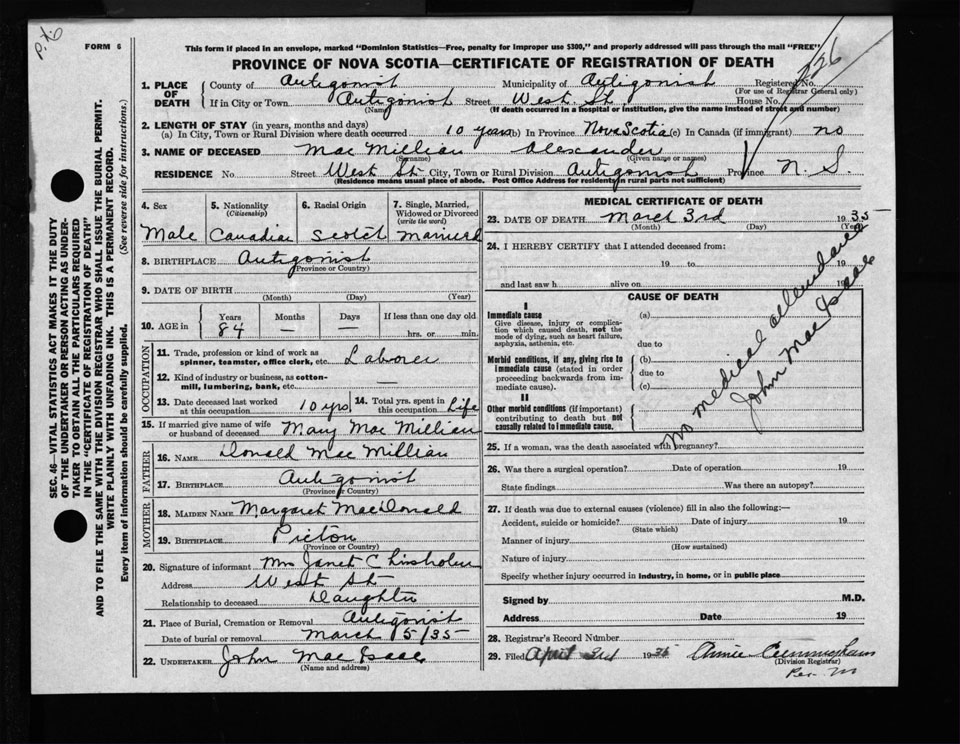 P.t.o
FORM 6
This form if placed in an envelope, marked "Dominion Statistics—Free, penalty for improper use $300," and properly addressed will pass through the mail "FREE"
PROVINCE OF NOVA SCOTIA—CERTIFICATE OF REGISTRATION OF DEATH
226
1. PLACE OF DEATH
County of Antigonish Municipality of Antigonish Registered No.
(For use of Registrar General only)
If in City or Town Antigonish Street West St. House No.
(Name) (If death occurred in a hospital or institution, give the name instead of street and number)
2. LENGTH OF STAY (in years, months and days)
(a) In City, Town or Rural Division where death occurred 10 years (b) In Province Nova Scotia (c) In Canada (if immigrant) no
3. NAME OF DECEASED Mac Millian Alexander
(Surname) (Given name or names)
RESIDENCE No Street West St. City, Town or Rural Division Antigonish Province N. S.
(Residence means usual place of abode. Post Office Address for residents in rural parts not sufficient)
SEC. 46—VITAL STATISTICS ACT MAKES IT THE DUTY
OF THE UNDERTAKER OR PERSON ACTING AS UNDER-
TAKER TO OBTAIN ALL THE PARTICULARS REQUIRED
IN THE "CERTIFICATE OF REGISTRATION OF DEATH"
AND TO FILE THE SAME WITH THE DIVISION REGISTRAR WHO SHALL ISSUE THE BURIAL PERMIT.
WRITE PLAINLY WITH UNFADING INK. THIS IS A PERMANENT RECORD.
Every item of information should be carefully supplied. (See reverse side for instructions.)
4. Sex
Male
5. Nationality
(Citizenship)
Canadian
6. Racial Origin
Scotch
7. Single, Married,
Widowed or Divorced
(write the word)
Married
8. BIRTHPLACE Antigonish
(Province or Country)
9. DATE OF BIRTH
(Month) (Day) (Year)
10. AGE in
Years Months Days If less than one day old
84 — — hrs. or min.
OCCUPATION
11. Trade, profession or kind of work as
spinner, teamster, office clerk, etc. Laborer
12. Kind of industry or business, as cotton-
mill, lumbering, bank, etc. —
13. Date deceased last worked
at this occupation 10 yrs
14. Total yrs. spent in
this occupation Life
15. If married give name of wife
or husband of deceased Mary Mac Millian
FATHER
16. NAME Donald Mac Millian
17. BIRTHPLACE Antigonish
(Province or Country)
MOTHER
18. MAIDEN NAME Margaret MacDonald
19. BIRTHPLACE Picton
(Province or Country)
20. Signature of informant Mrs Janet Chisholm
Address West St.
Relationship to deceased Daughter
21. Place of Burial, Cremation or Removal Antigonish
Date of burial or removal March 5/35
22. UNDERTAKER John Mac Isaac
(Name and address)
MEDICAL CERTIFICATE OF DEATH
23. DATE OF DEATH March 3rd 1935
(Month) (Day) (Year)
24. I HEREBY CERTIFY that I attended deceased from:
19 to 19
and last saw h alive on 19
CAUSE OF DEATH
I
Immediate cause
Give disease, injury or complica-
tion which caused death, not the
mode of dying, such as heart failure,
asphyxia, asthenia, etc.
(a)
due to
Morbid conditions, if any, giving rise to
immediate cause (stated in order
proceeding backwards from im-
mediate cause).
(b)
due to
(c)
II
Other morbid conditions (if important)
contributing to death but not
causally related to immediate cause.
No medical attendance
John Mac Isaac
25. If a woman, was the death associated with pregnancy?
26. Was there a surgical operation? Date of operation 19
State findings Was there an autopsy?
27. If death was due to external causes (violence) fill in also the following:—
Accident, suicide or homicide? Date of injury 19
(State which)
Manner of injury
(How sustained)
Nature of injury
Specify whether injury occurred in industry, in home, or in public place
Signed by M.D.
Address Date 19
28. Registrar's Record Number
29. Filed April 3rd 1935 Annie Cunningham
(Division Registrar)
Per. M